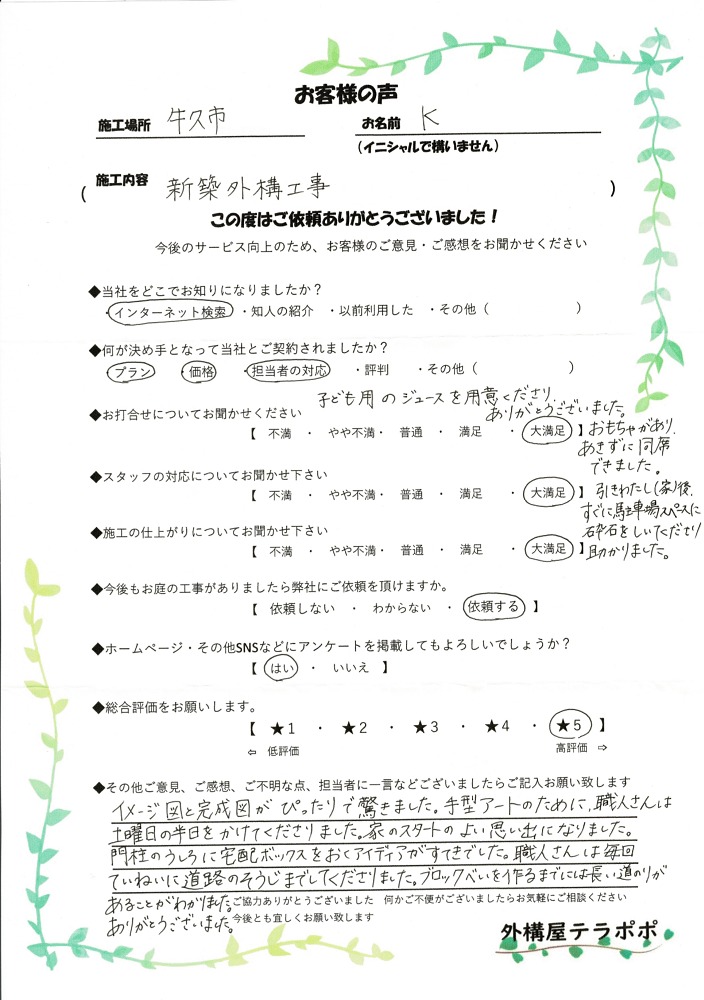 お客様の声
施工場所 牛久市
お名前 K
(イニシャルで構いません)
( 施工内容 新築外構工事 )
この度はご依頼ありがとうございました!
今後のサービス向上のため、お客様のご意見・ご感想をお聞かせください
◆当社をどこでお知りになりましたか?
・インターネット検索 ・知人の紹介 ・以前利用した ・その他( )
◆何が決め手となって当社とご契約されましたか?
・プラン ・価格 ・担当者の対応 ・評判 ・その他( )
子ども用のジュースを用意くださり、
ありがとうございました。
◆お打合せについてお聞かせください
【 不満 ・ やや不満・ 普通 ・ 満足 ・ 大満足 】
おもちゃがあり、
あきずに同席
できました。
◆スタッフの対応についてお聞かせ下さい
【 不満 ・ やや不満・ 普通 ・ 満足 ・ 大満足 】
引きわたし(家)後、
すぐに駐車場スペースに
砕石をしいてくださり
助かりました。
◆施工の仕上がりについてお聞かせ下さい
【 不満 ・ やや不満・ 普通 ・ 満足 ・ 大満足 】
◆今後もお庭の工事がありましたら弊社にご依頼を頂けますか。
【 依頼しない ・ わからない ・ 依頼する 】
◆ホームページ・その他SNSなどにアンケートを掲載してもよろしいでしょうか?
【 はい ・ いいえ 】
◆総合評価をお願いします。
【 ★1 ・ ★2 ・ ★3 ・ ★4 ・ ★5 】
⇦ 低評価 高評価 ⇨
◆その他ご意見、ご感想、ご不明な点、担当者に一言などございましたらご記入お願い致します
イメージ図と完成図がぴったりで驚きました。手型アートのために、職人さんは
土曜日の半日をかけてくださりました。家のスタートのよい思い出になりました。
門柱のうしろに宅配ボックスをおくアイディアがすてきでした。職人さんは毎回
ていねいに道路のそうじまでしてくださりました。ブロックべいを作るまでには長い道のりが
あることがわかりました。
ありがとうございました。
ご協力ありがとうございました 何かご不便がございましたらお気軽にご相談ください
今後とも宜しくお願い致します
外構屋テラポポ